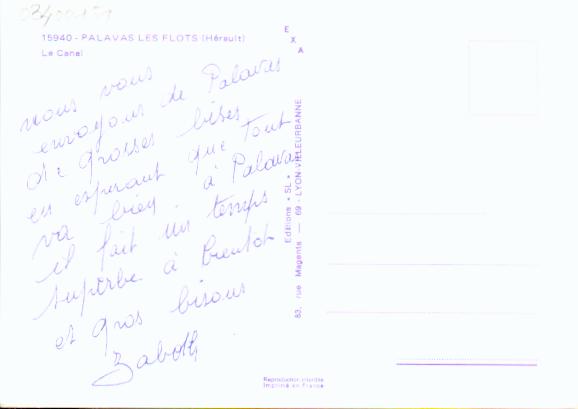 15940 - PALAVAS LES FLOTS (Hérault)
Le Canal
nous vous
envoyons de Palavas
de grosses bises
en esperant que tout
va bien. à Palavas
il fait un temps
superbe à bientot
et gros bisous
EXA
Editions « SL »
83, rue Magenta — 69 - LYON-VILLEURBANNE
Reproduction interdite
Imprimé en France